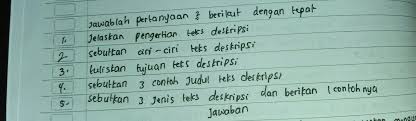 Jawablah pertanyaan 2 berikut dengan tepat
1. Jelaskan pengertian teks deskripsi
2. sebutkan ciri-ciri teks deskripsi
3. tuliskan tujuan teks deskripsi
4. sebutkan 3 contoh Judul teks deskripsi
5. sebutkan 3 Jenis teks deskripsi dan berikan 1 contoh nya
Jawaban